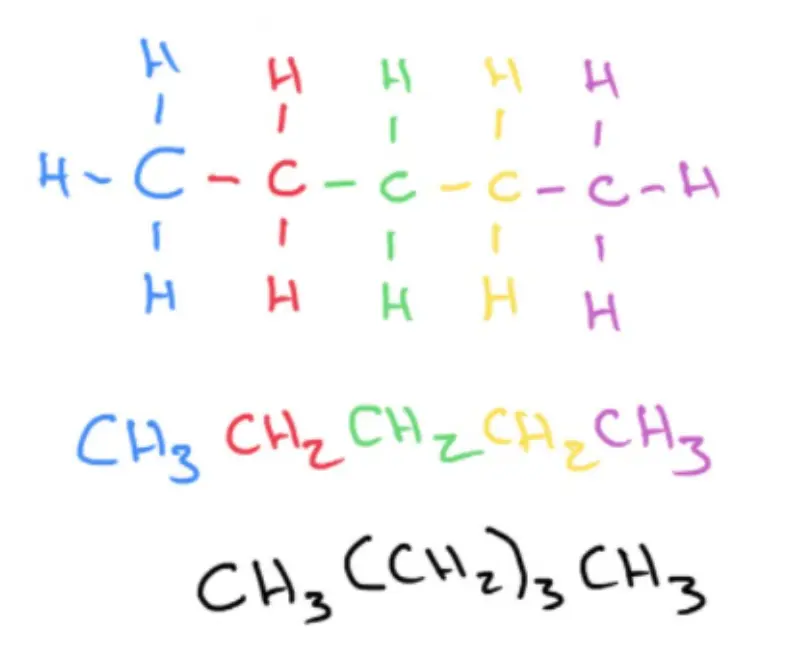 H H H H H
H-C-C-C-C-C-H
H H H H H
CH3 CH2 CH2 CH2 CH3
CH3(CH2)3CH3